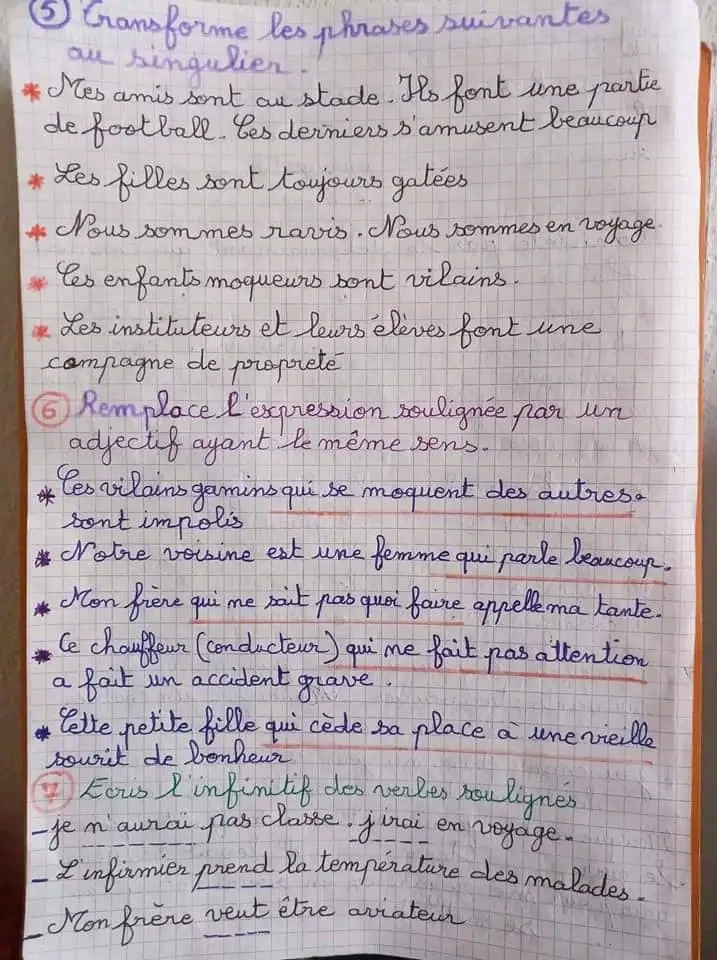 5 Transforme les phrases suivantes
au singulier.
* Mes amis sont au stade. Ils font une partie
de football. Ces derniers s'amusent beaucoup
* Les filles sont toujours gatées
* Nous sommes ravis. Nous sommes en voyage.
* Ces enfants moqueurs sont vilains.
* Les instituteurs et leurs élèves font une
campagne de propreté
6 Remplace l'expression soulignée par un
adjectif ayant le même sens.
* Ces vilains gamins qui se moquent des autres.
sont impolis
* Notre voisine est une femme qui parle beaucoup.
* Mon frère qui ne sait pas quoi faire appelle ma tante.
* Ce chauffeur (conducteur) qui ne fait pas attention
a fait un accident grave.
* Cette petite fille qui cède sa place à une vieille
sourit de bonheur
7 Ecris l'infinitif des verbes soulignés
- je n'aurai pas classe. j'irai en voyage.
- L'infirmier prend la température des malades.
- Mon frère veut être aviateur